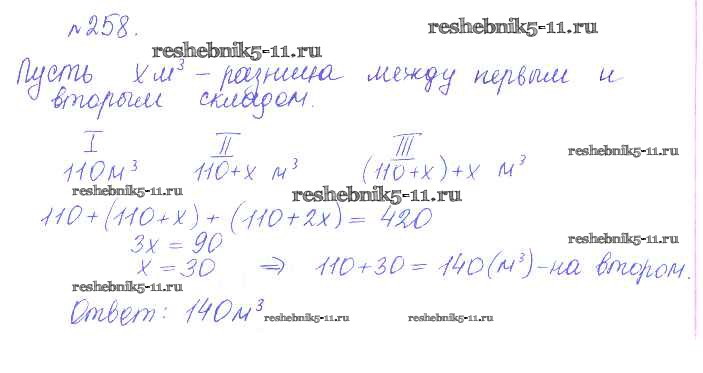 №258.
reshebnik5-11.ru
reshebnik5-11.ru
Пусть x м³ – разница между первым и
вторым складом.
I II III
110м³ 110+x м³ (110+x)+x м³
reshebnik5-11.ru
reshebnik5-11.ru
reshebnik5-11.ru
110+(110+x)+(110+2x)=420
3x=90
reshebnik5-11.ru
x=30 ⇒ 110+30=140(м³)–на втором.
reshebnik5-11.ru
Ответ: 140м³
reshebnik5-11.ru
reshebnik5-11.ru